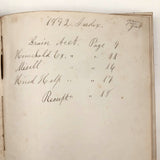 1892 Index.
Grain Acct. Page 9
Household Ex. " 11
Miscll " 14
Hired Help " 17
Receipt " 18